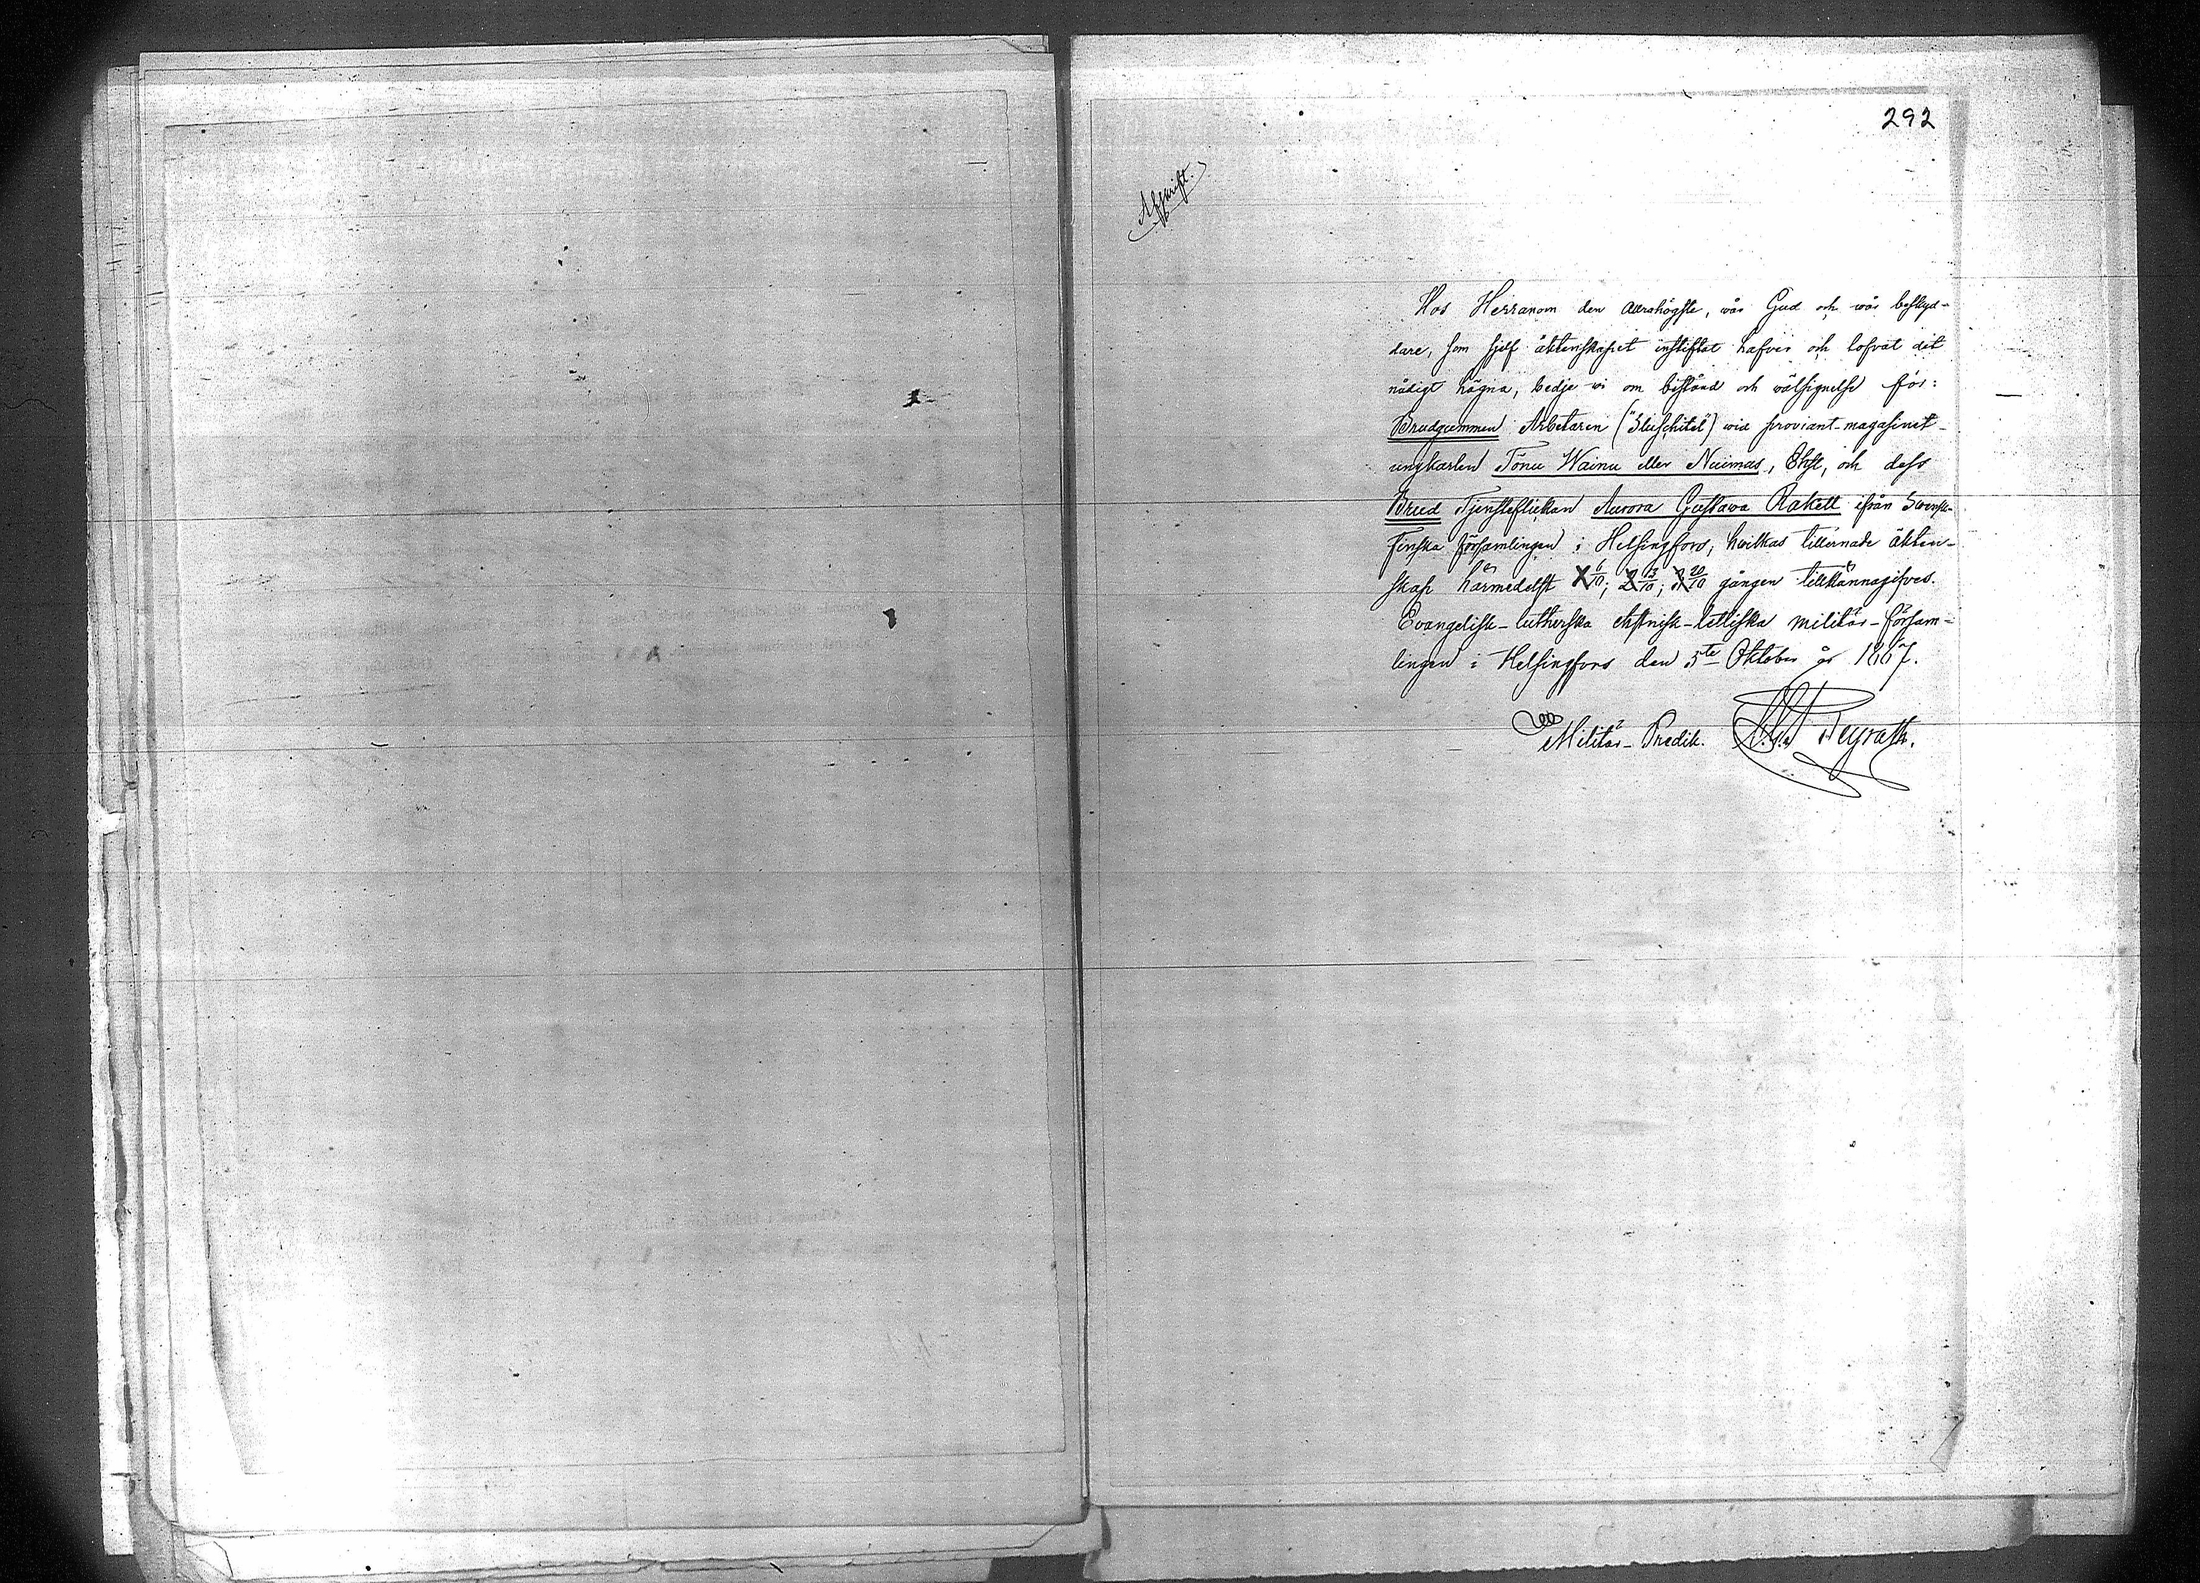 292
Afskrift.
Hos Herranom den allrahögste, vår Gud och vår beskyd-
dare, som sjelf äktenskapet instiftat hafver och lofvat det
nådigt hägna, bedje vi om bistånd och välsignelse för:
Brudgummen Arbetaren ("Sluschitel") vid proviant-magasinet
ungkarlen Tönu Wainu eller Nuimas, Ehst, och dess
Brud Tjensteflickan Aurora Gustava Rakell ifrån Svensk-
Finska församlingen i Helsingfors, hvilkas tillernade äkten-
skap härmedelst X 6/10; 2 13/10; 3 20/10 gången tillkännagifves.
Evangelisk-lutherska ehstnisk-lettiska militär-försam-
lingen i Helsingfors den 5te Oktober år 1867.
Militär-Predik. Neyrath.